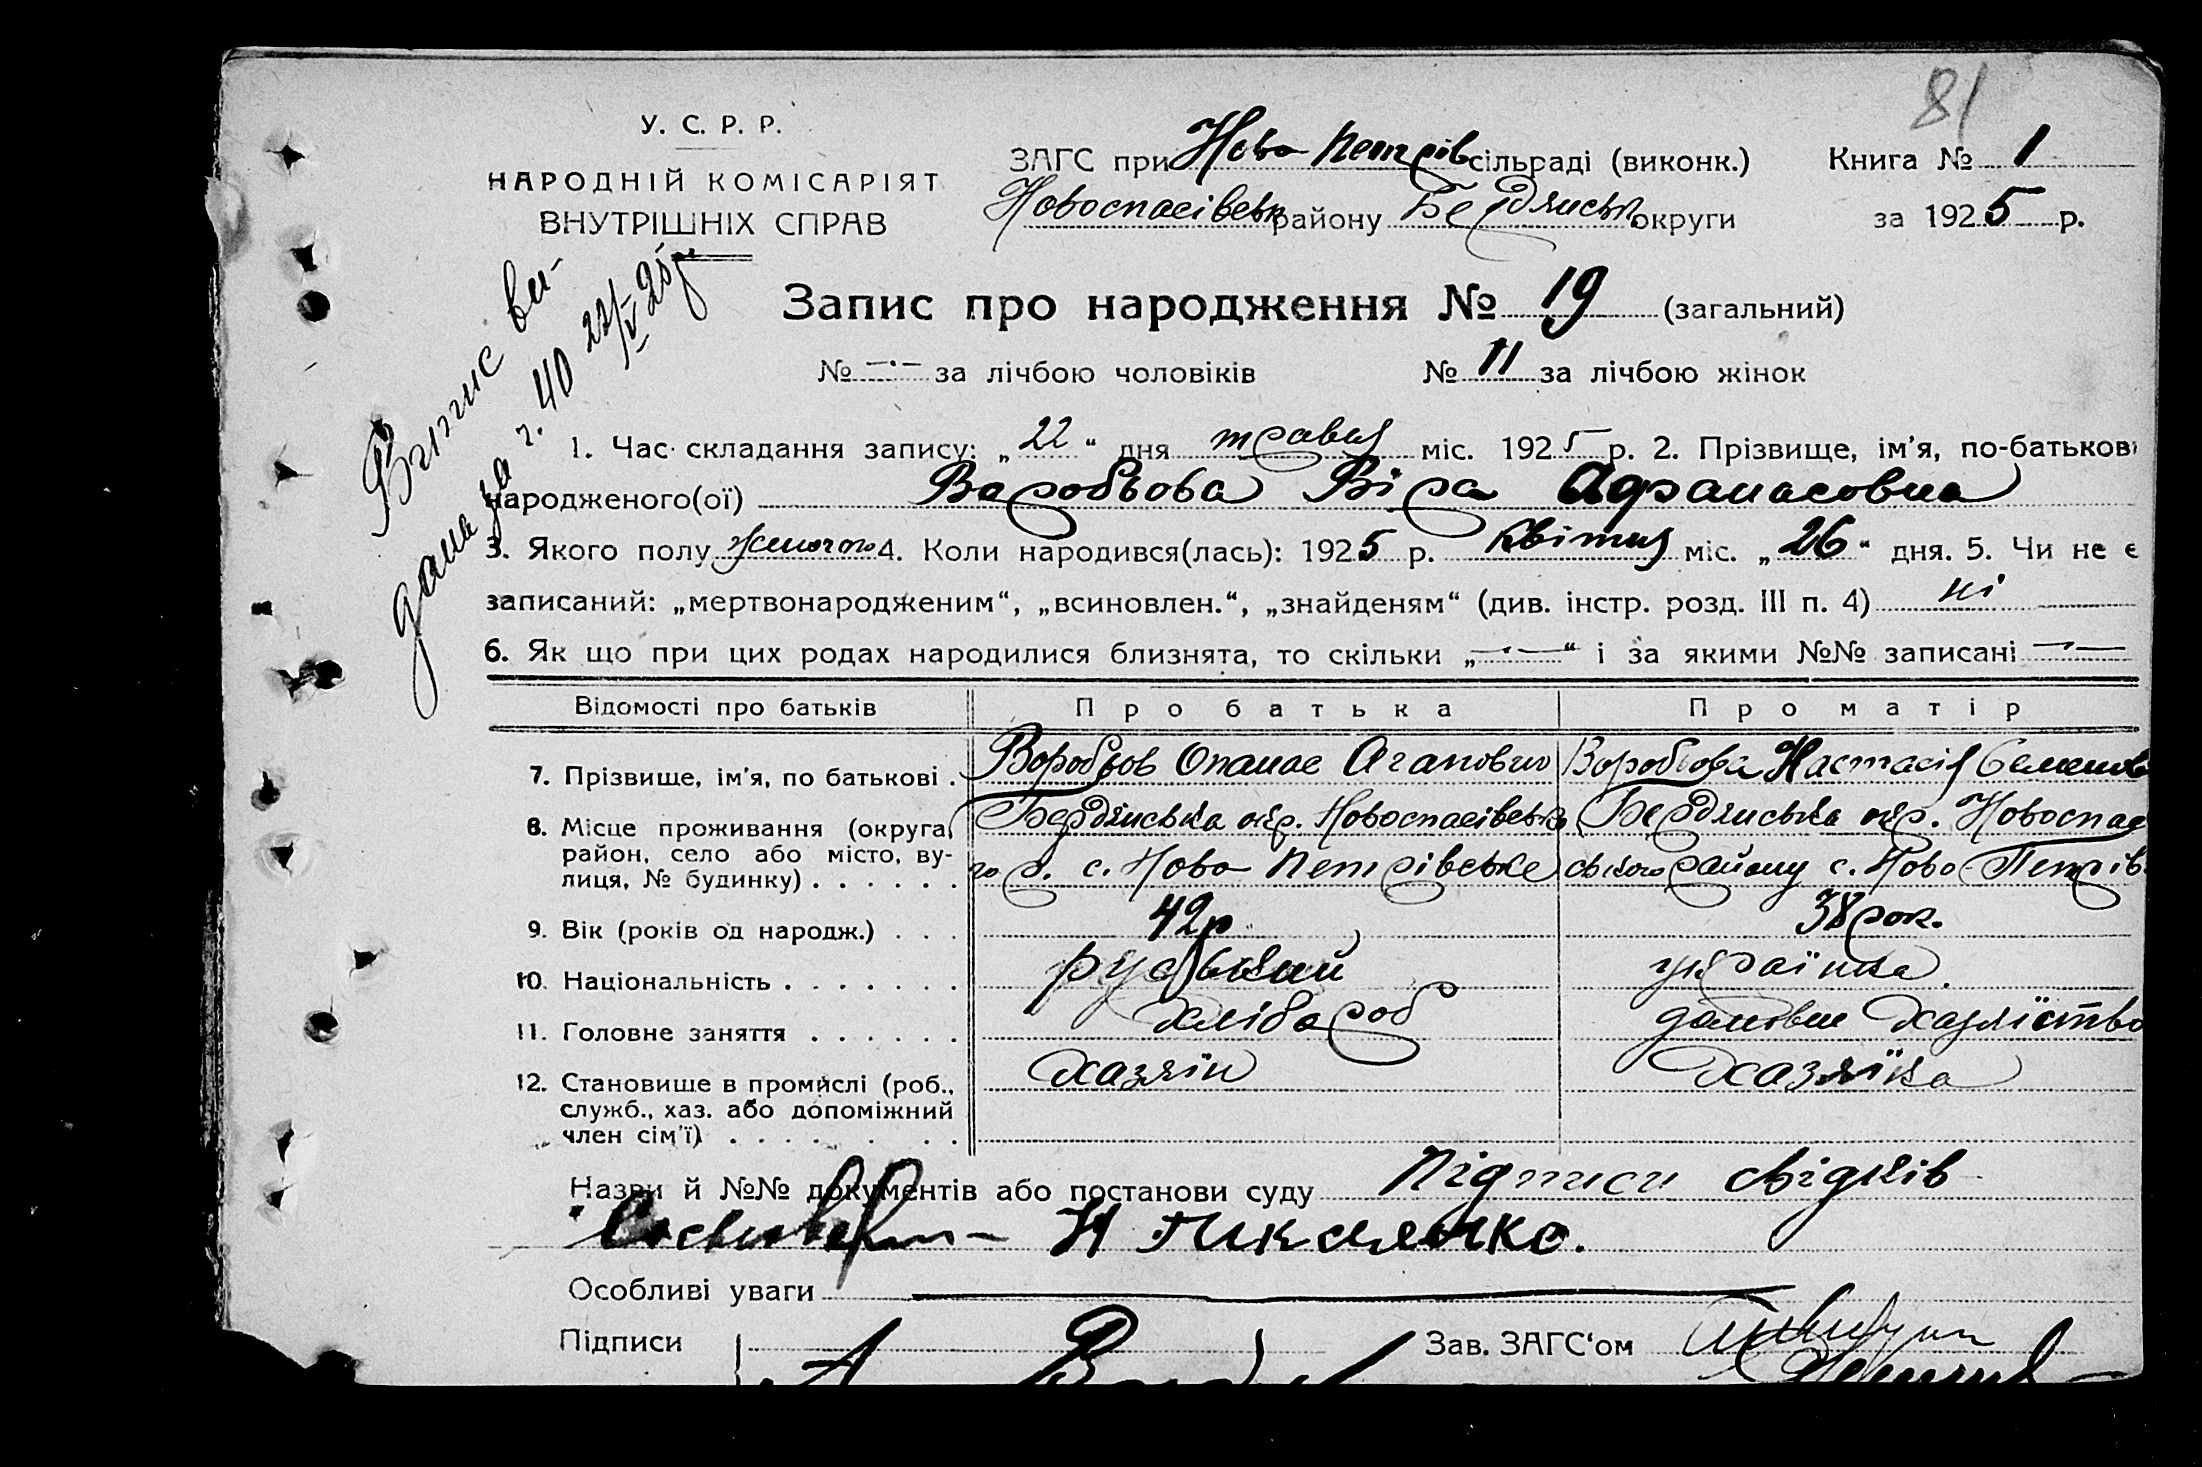 81
У. С. Р. Р.
НАРОДНІЙ КОМІСАРІЯТ
ВНУТРІШНІХ СПРАВ
ЗАГС при Ново Петрів сільраді (виконк.) Книга № 1
Новоспасівськ району Бердянськ округи за 1925 р.
Випис ви-
дана за ч. 40 22/V 25р
Запис про народження № 19 (загальний)
№ —·— за лічбою чоловіків № 11 за лічбою жінок
1. Час складання запису: „22“ дня травня міс. 1925 р. 2. Прізвище, ім'я, по-батькові
народженого(ої) Воробьова Віра Афанасовна
3. Якого полу жіночого 4. Коли народився(лась): 1925 р. квітня міс. „26“ дня. 5. Чи не є
записаний: „мертвонародженим“, „всиновлен.“, „знайденям“ (див. інстр. розд. III п. 4) ні
6. Як що при цих родах народилися близнята, то скільки „—·—“ і за якими №№ записані —·—
Відомості про батьків Про батька Про матір
7. Прізвище, ім'я, по батькові . Воробьов Опанас Агапович Воробьова Настасія Семенов
8. Місце проживання (округа, район, село або місто, ву- лиця, № будинку) . . . . . . Бердянська окр. Новоспасівсько го р. с. Ново Петрівське Бердянська окр. Новоспас ського району с. Ново-Петрів
9. Вік (років од народж.) . . . 42р 38 рок.
10. Національність . . . . . . . руський українка
11. Головне заняття . . . . . . хлібороб домовне хазяїство
12. Становище в промислі (роб., служб., хаз. або допоміжний член сім'ї) . . . . . . . хазяїн хазяїка
Назви й №№ документів або постанови суду Підписи свідків
Н
Особливі уваги
Підписи Зав. ЗАГС'ом